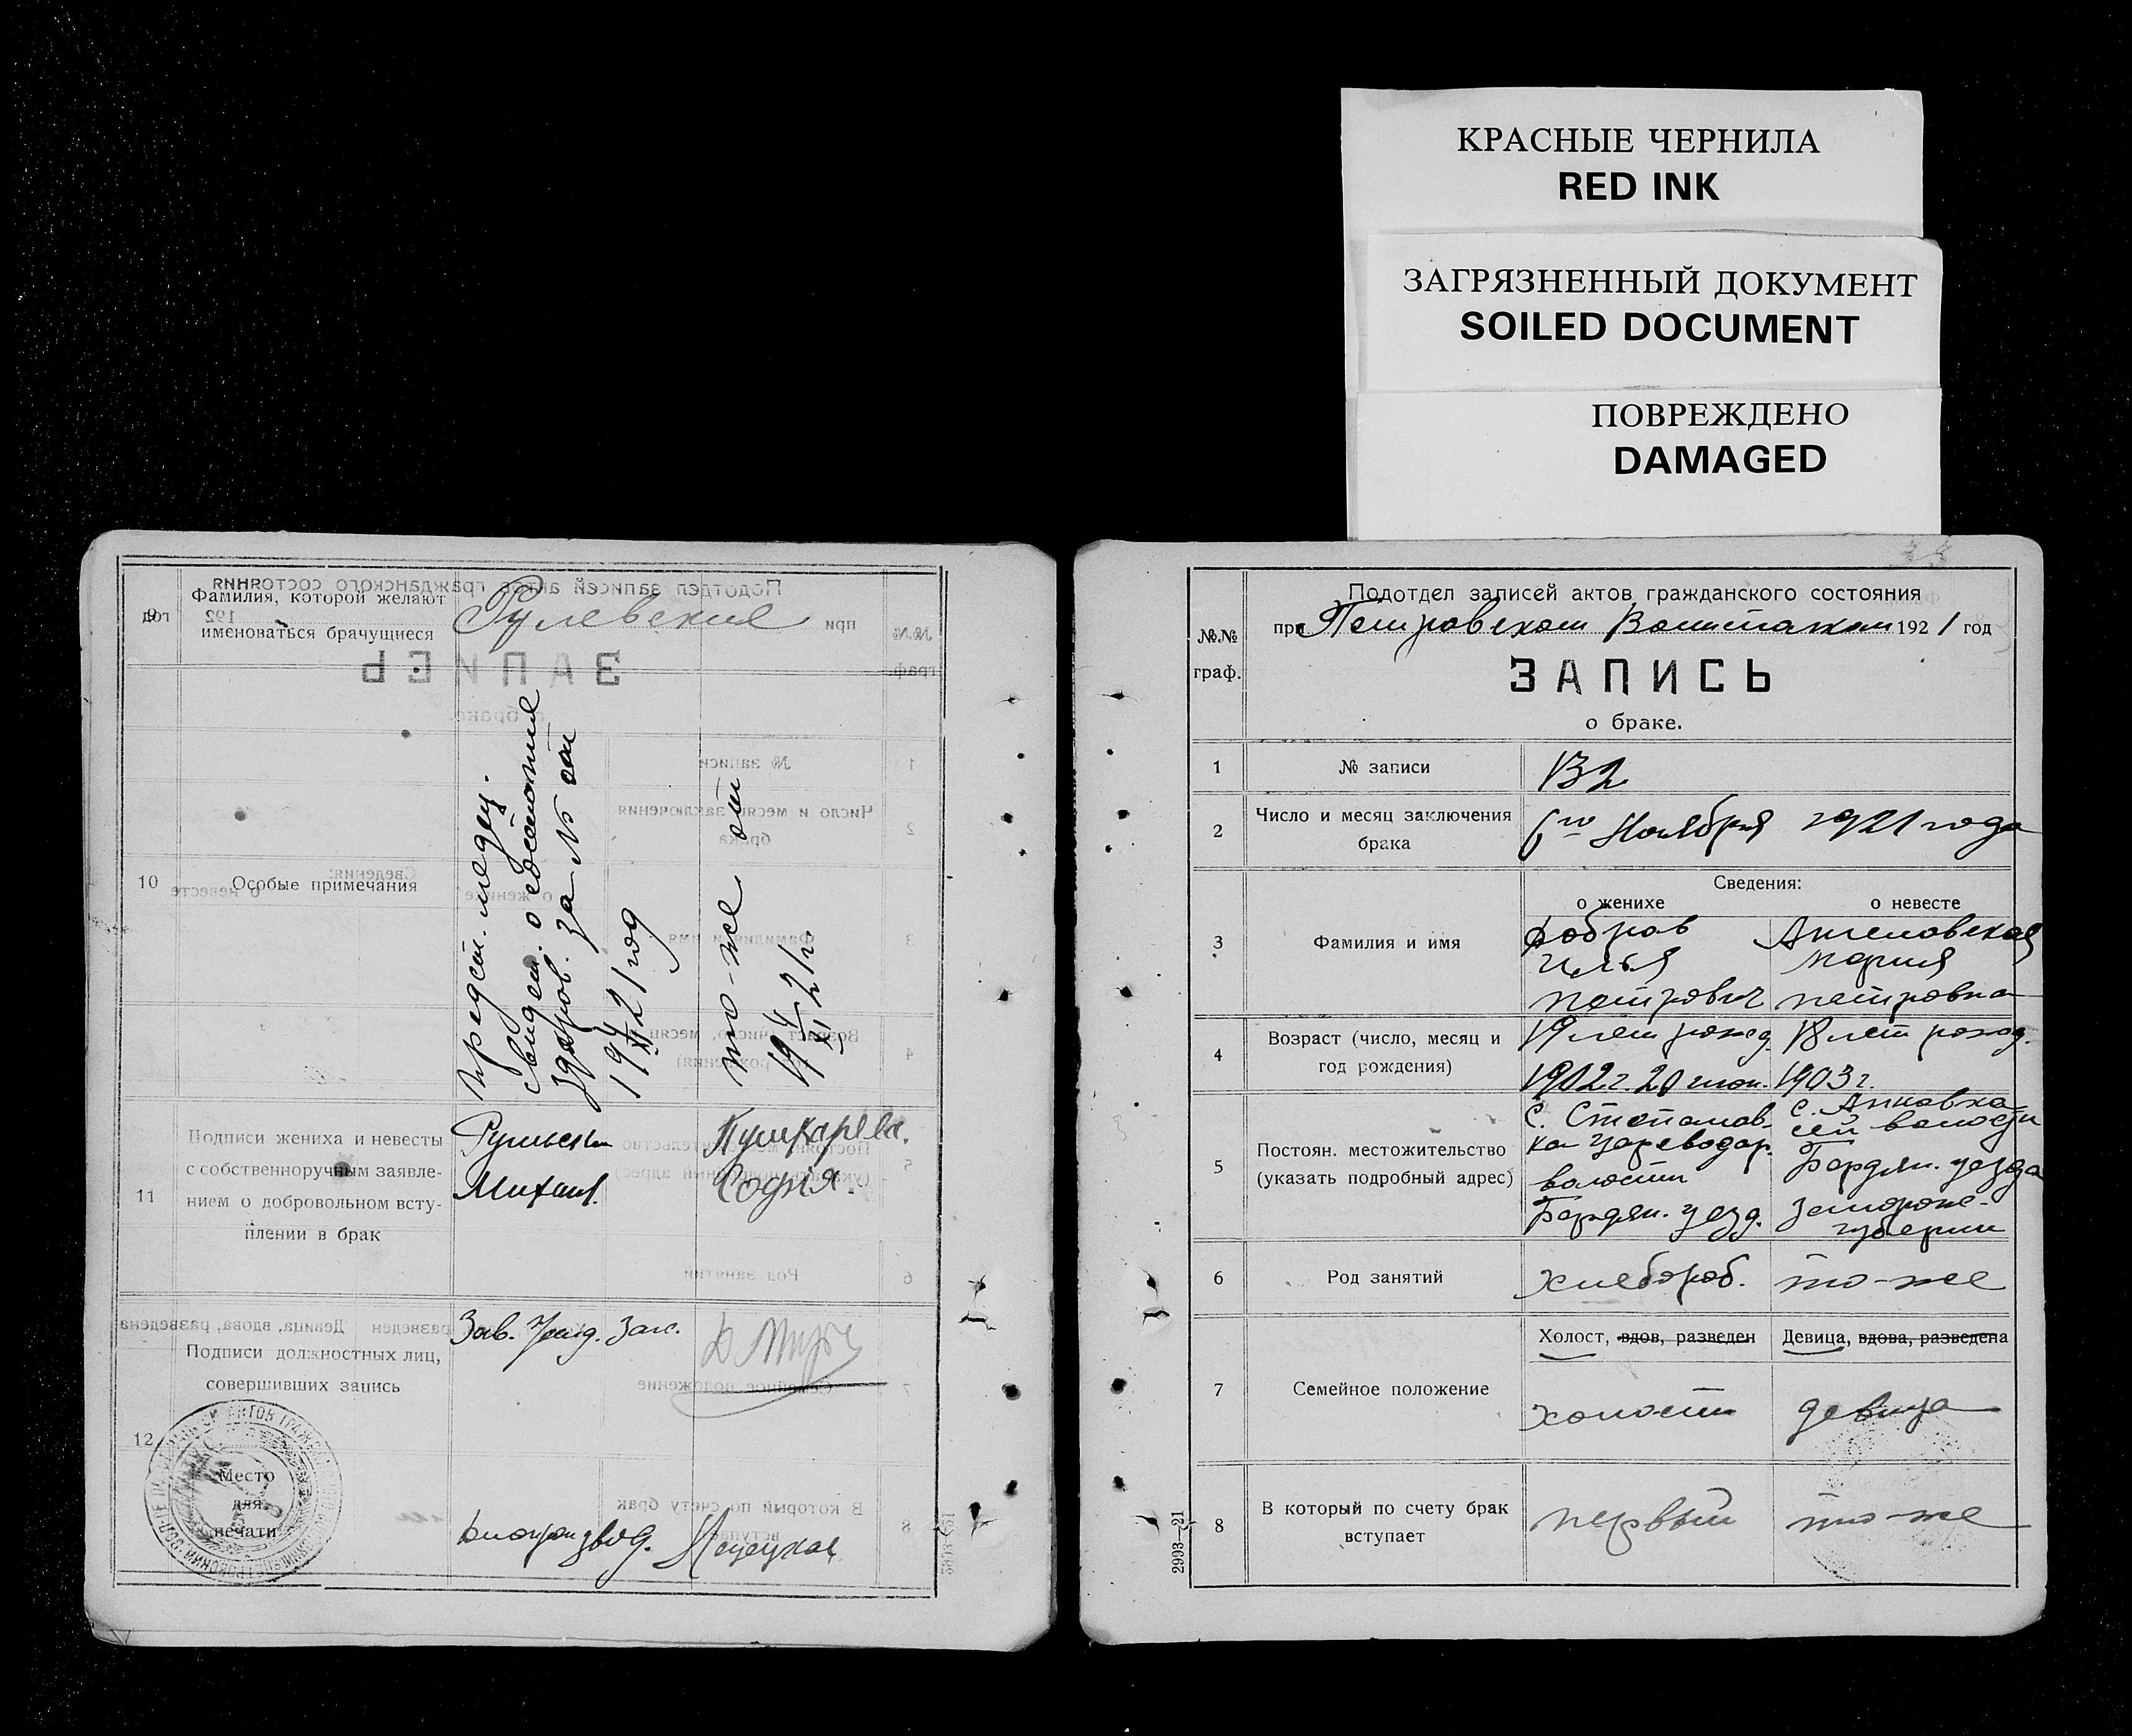 КРАСНЫЕ ЧЕРНИЛА
RED INK
ЗАГРЯЗНЕННЫЙ ДОКУМЕНТ
SOILED DOCUMENT
ПОВРЕЖДЕНО
DAMAGED
9
Фамилия, которой желают
именоваться брачущиеся
10
Особые примечания
предст. медиц.
свидет. о состоянии
здоров. за № от
19 4/XI 21 год
то-же от
19 4/XI 21 г.
11
Подписи жениха и невесты
с собственноручным заявле-
нием о добровольном всту-
плении в брак
Михаил.
Пушкарева.
София.
12
Подписи должностных лиц,
совершивших запись
Зав.
Место
для
печати
№№
граф.
Подотдел записей актов гражданского состояния
при Петровском 1921 год
ЗАПИСЬ
о браке.
1
№ записи
132
2
Число и месяц заключения
брака
6го Ноября 1921 года
3
Фамилия и имя
Сведения:
о женихе
о невесте
Бобров
Илья
Петрович
Мария
Петровна
4
Возраст (число, месяц и
год рождения)
19 лет рожд.
1902 г. 20 июл.
18 лет рожд.
1903 г.
5
Постоян. местожительство
(указать подробный адрес)
с. Степанов-
ка Цареводар.
волости
Бердян. уезд.
с. Анновка
волости
Бердян. уезда
губернии
6
Род занятий
хлебороб.
то-же
7
Семейное положение
Холост, вдов, разведен
Девица, вдова, разведена
холост
девица
8
В который по счету брак
вступает
первый
то-же
2993—21